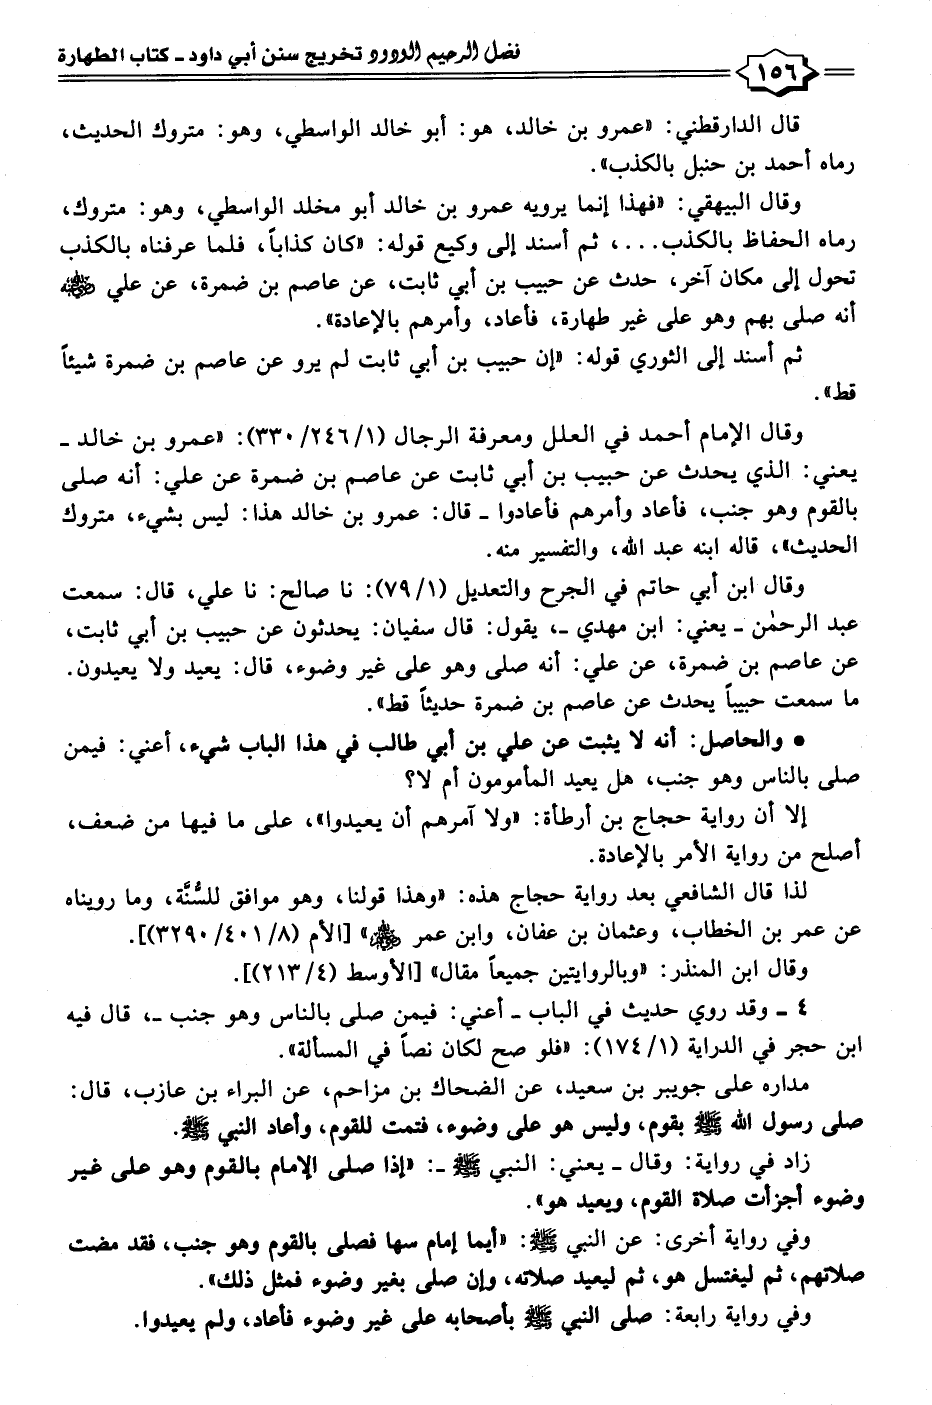 فضل الرحيم الودود تخريج سنن أبي داود ـ كتاب الطهارة
١٥٦
قال الدارقطني: «عمرو بن خالد، هو: أبو خالد الواسطي، وهو: متروك الحديث،
رماه أحمد بن حنبل بالكذب».
وقال البيهقي: «فهذا إنما يرويه عمرو بن خالد أبو مخلد الواسطي، وهو: متروك،
رماه الحفاظ بالكذب...، ثم أسند إلى وكيع قوله: «كان كذاباً، فلما عرفناه بالكذب
تحول إلى مكان آخر، حدث عن حبيب بن أبي ثابت، عن عاصم بن ضمرة، عن علي رضي الله عنه
أنه صلى بهم وهو على غير طهارة، فأعاد، وأمرهم بالإعادة».
ثم أسند إلى الثوري قوله: «إن حبيب بن أبي ثابت لم يرو عن عاصم بن ضمرة شيئاً
قط».
وقال الإمام أحمد في العلل ومعرفة الرجال (١/٢٤٦/٣٣٠): «عمرو بن خالد ـ
يعني: الذي يحدث عن حبيب بن أبي ثابت عن عاصم بن ضمرة عن علي: أنه صلى
بالقوم وهو جنب، فأعاد وأمرهم فأعادوا ـ قال: عمرو بن خالد هذا: ليس بشيء، متروك
الحديث»، قاله ابنه عبد الله، والتفسير منه.
وقال ابن أبي حاتم في الجرح والتعديل (١/٧٩): نا صالح: نا علي، قال: سمعت
عبد الرحمٰن ـ يعني: ابن مهدي ـ، يقول: قال سفيان: يحدثون عن حبيب بن أبي ثابت،
عن عاصم بن ضمرة، عن علي: أنه صلى وهو على غير وضوء، قال: يعيد ولا يعيدون.
ما سمعت حبيباً يحدث عن عاصم بن ضمرة حديثاً قط».
• والحاصل: أنه لا يثبت عن علي بن أبي طالب في هذا الباب شيء، أعني: فيمن
صلى بالناس وهو جنب، هل يعيد المأمومون أم لا؟
إلا أن رواية حجاج بن أرطأة: «ولا آمرهم أن يعيدوا»، على ما فيها من ضعف،
أصلح من رواية الأمر بالإعادة.
لذا قال الشافعي بعد رواية حجاج هذه: «وهذا قولنا، وهو موافق للسُّنَّة، وما رويناه
عن عمر بن الخطاب، وعثمان بن عفان، وابن عمر رضي الله عنهم» [الأم (٨/٤٠١/٣٢٩٠)].
وقال ابن المنذر: «وبالروايتين جميعاً مقال» [الأوسط (٤/٢١٣)].
٤ ـ وقد روي حديث في الباب ـ أعني: فيمن صلى بالناس وهو جنب ـ، قال فيه
ابن حجر في الدراية (١/١٧٤): «فلو صح لكان نصاً في المسألة».
مداره على جويبر بن سعيد، عن الضحاك بن مزاحم، عن البراء بن عازب، قال:
صلى رسول الله ﷺ بقوم، وليس هو على وضوء، فتمت للقوم، وأعاد النبي ﷺ.
زاد في رواية: وقال ـ يعني: النبي ﷺ ـ: «إذا صلى الإمام بالقوم وهو على غير
وضوء أجزأت صلاة القوم، ويعيد هو».
وفي رواية أخرى: عن النبي ﷺ: «أيما إمام سها فصلى بالقوم وهو جنب، فقد مضت
صلاتهم، ثم ليغتسل هو، ثم ليعيد صلاته، وإن صلى بغير وضوء فمثل ذلك».
وفي رواية رابعة: صلى النبي ﷺ بأصحابه على غير وضوء فأعاد، ولم يعيدوا.